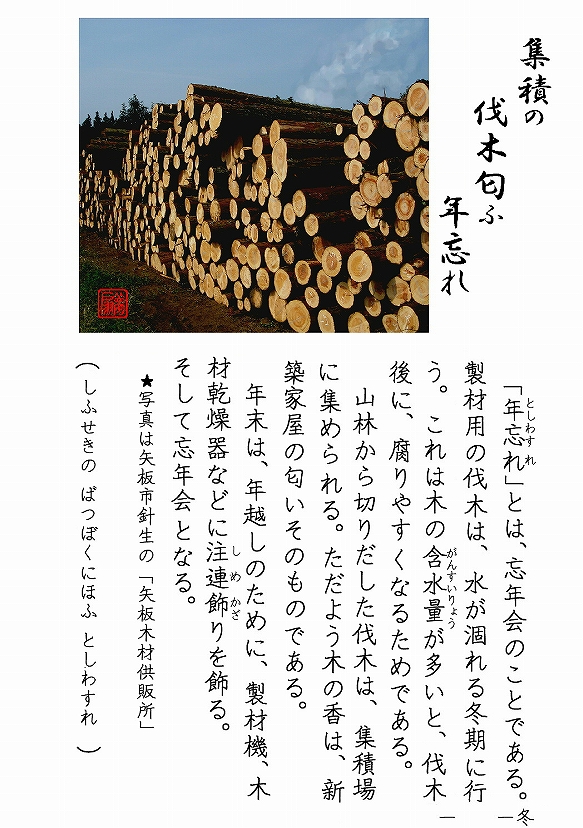 集積の
伐木匂ふ
年忘れ
「年忘れ」とは、忘年会のことである。
としわすれ
製材用の伐木は、水が涸れる冬期に行
う。これは木の含水量が多いと、伐木
がんすいりょう
後に、腐りやすくなるためである。
山林から切りだした伐木は、集積場
に集められる。ただよう木の香は、新
築家屋の匂いそのものである。
年末は、年越しのために、製材機、木
材乾燥器などに注連飾りを飾る。
しめかざ
そして忘年会となる。
★写真は矢板市針生の「矢板木材供販所」
(しふせきの ばつぼくにほふ としわすれ )
―冬―